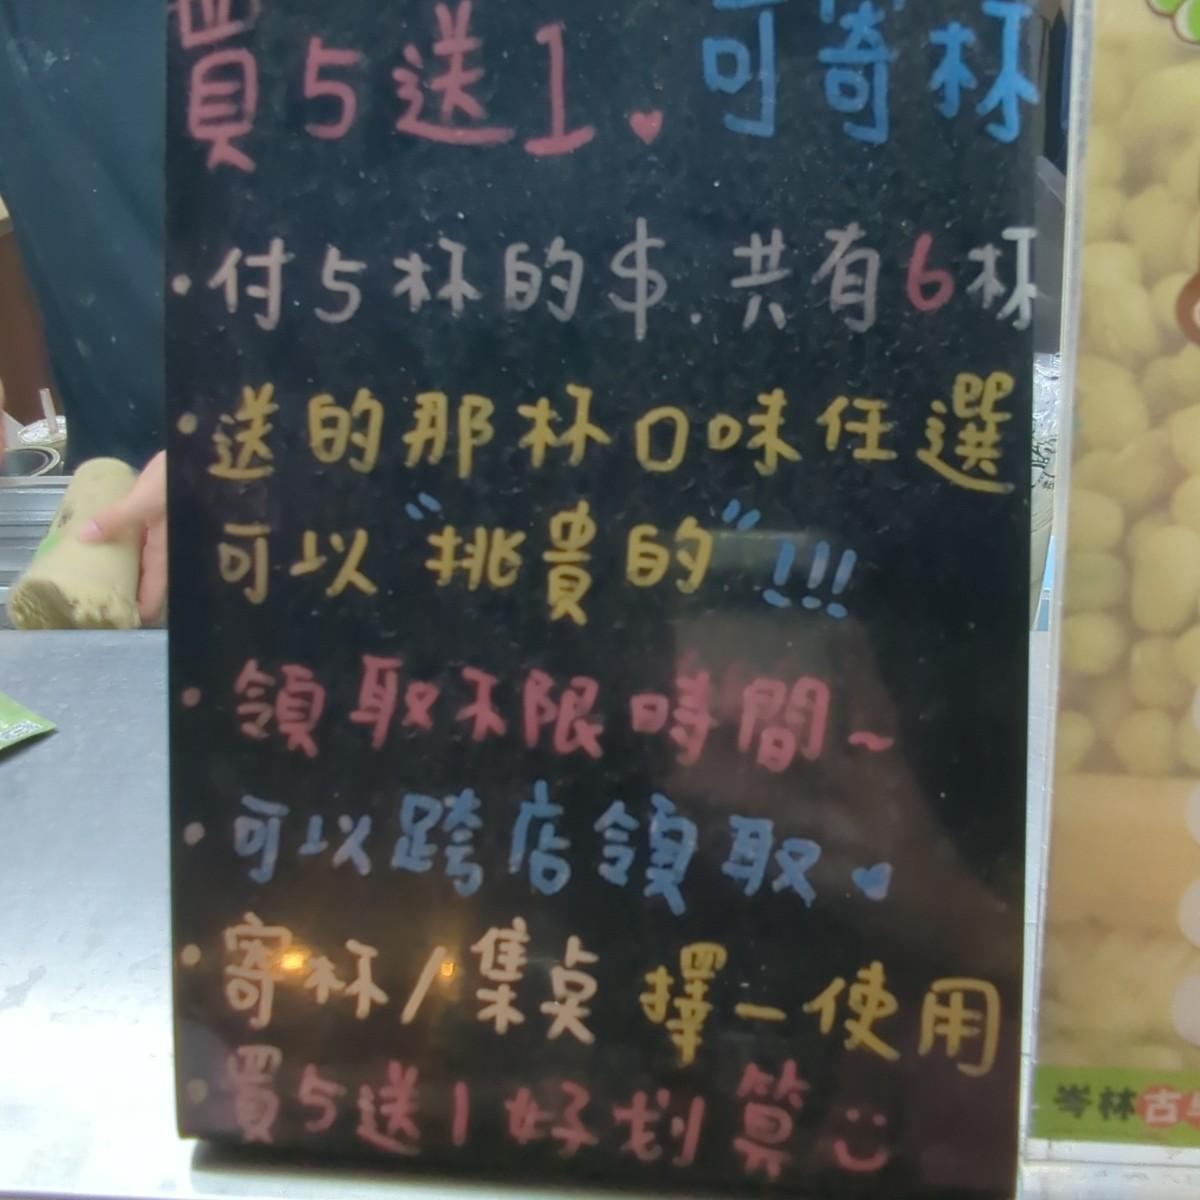 買5送1♥ 可寄杯
·付5杯的$.共有6杯
·送的那杯口味任選
可以"挑貴的"!!!
·領取不限時間~
·可以跨店領取♥
·寄杯/集点 擇一使用
·買5送1好划算
岑林古